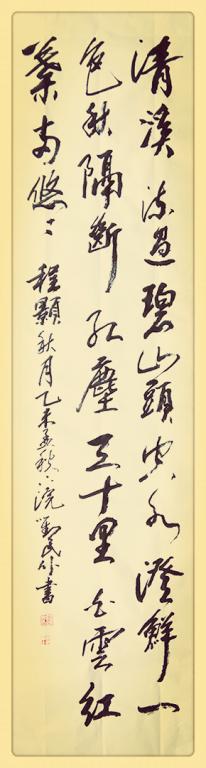 清溪流過碧山頭空水澄鮮一
色秋隔斷紅塵三十里白雲紅
葉兩悠〻程顥秋月乙未孟秋下浣劉民書